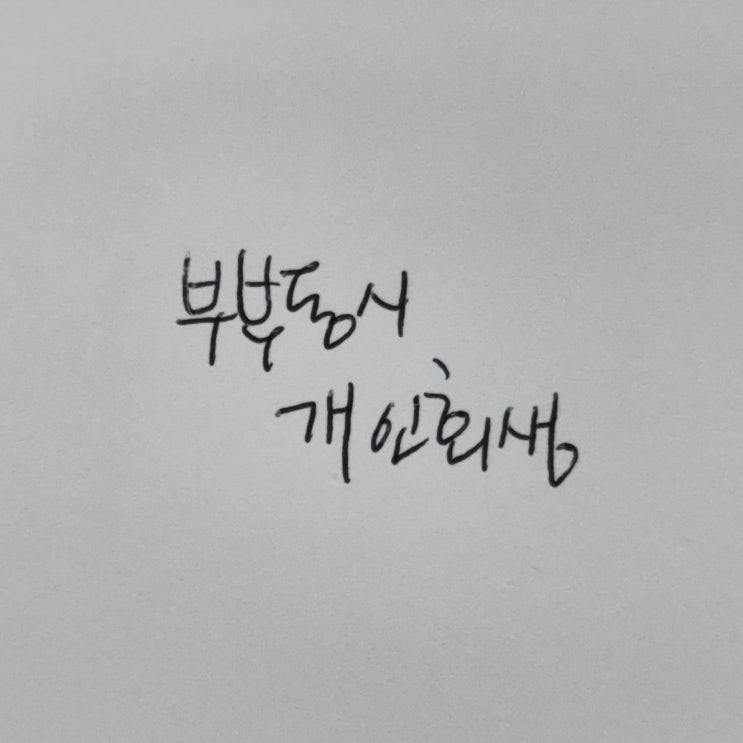 부부동시
개인회생